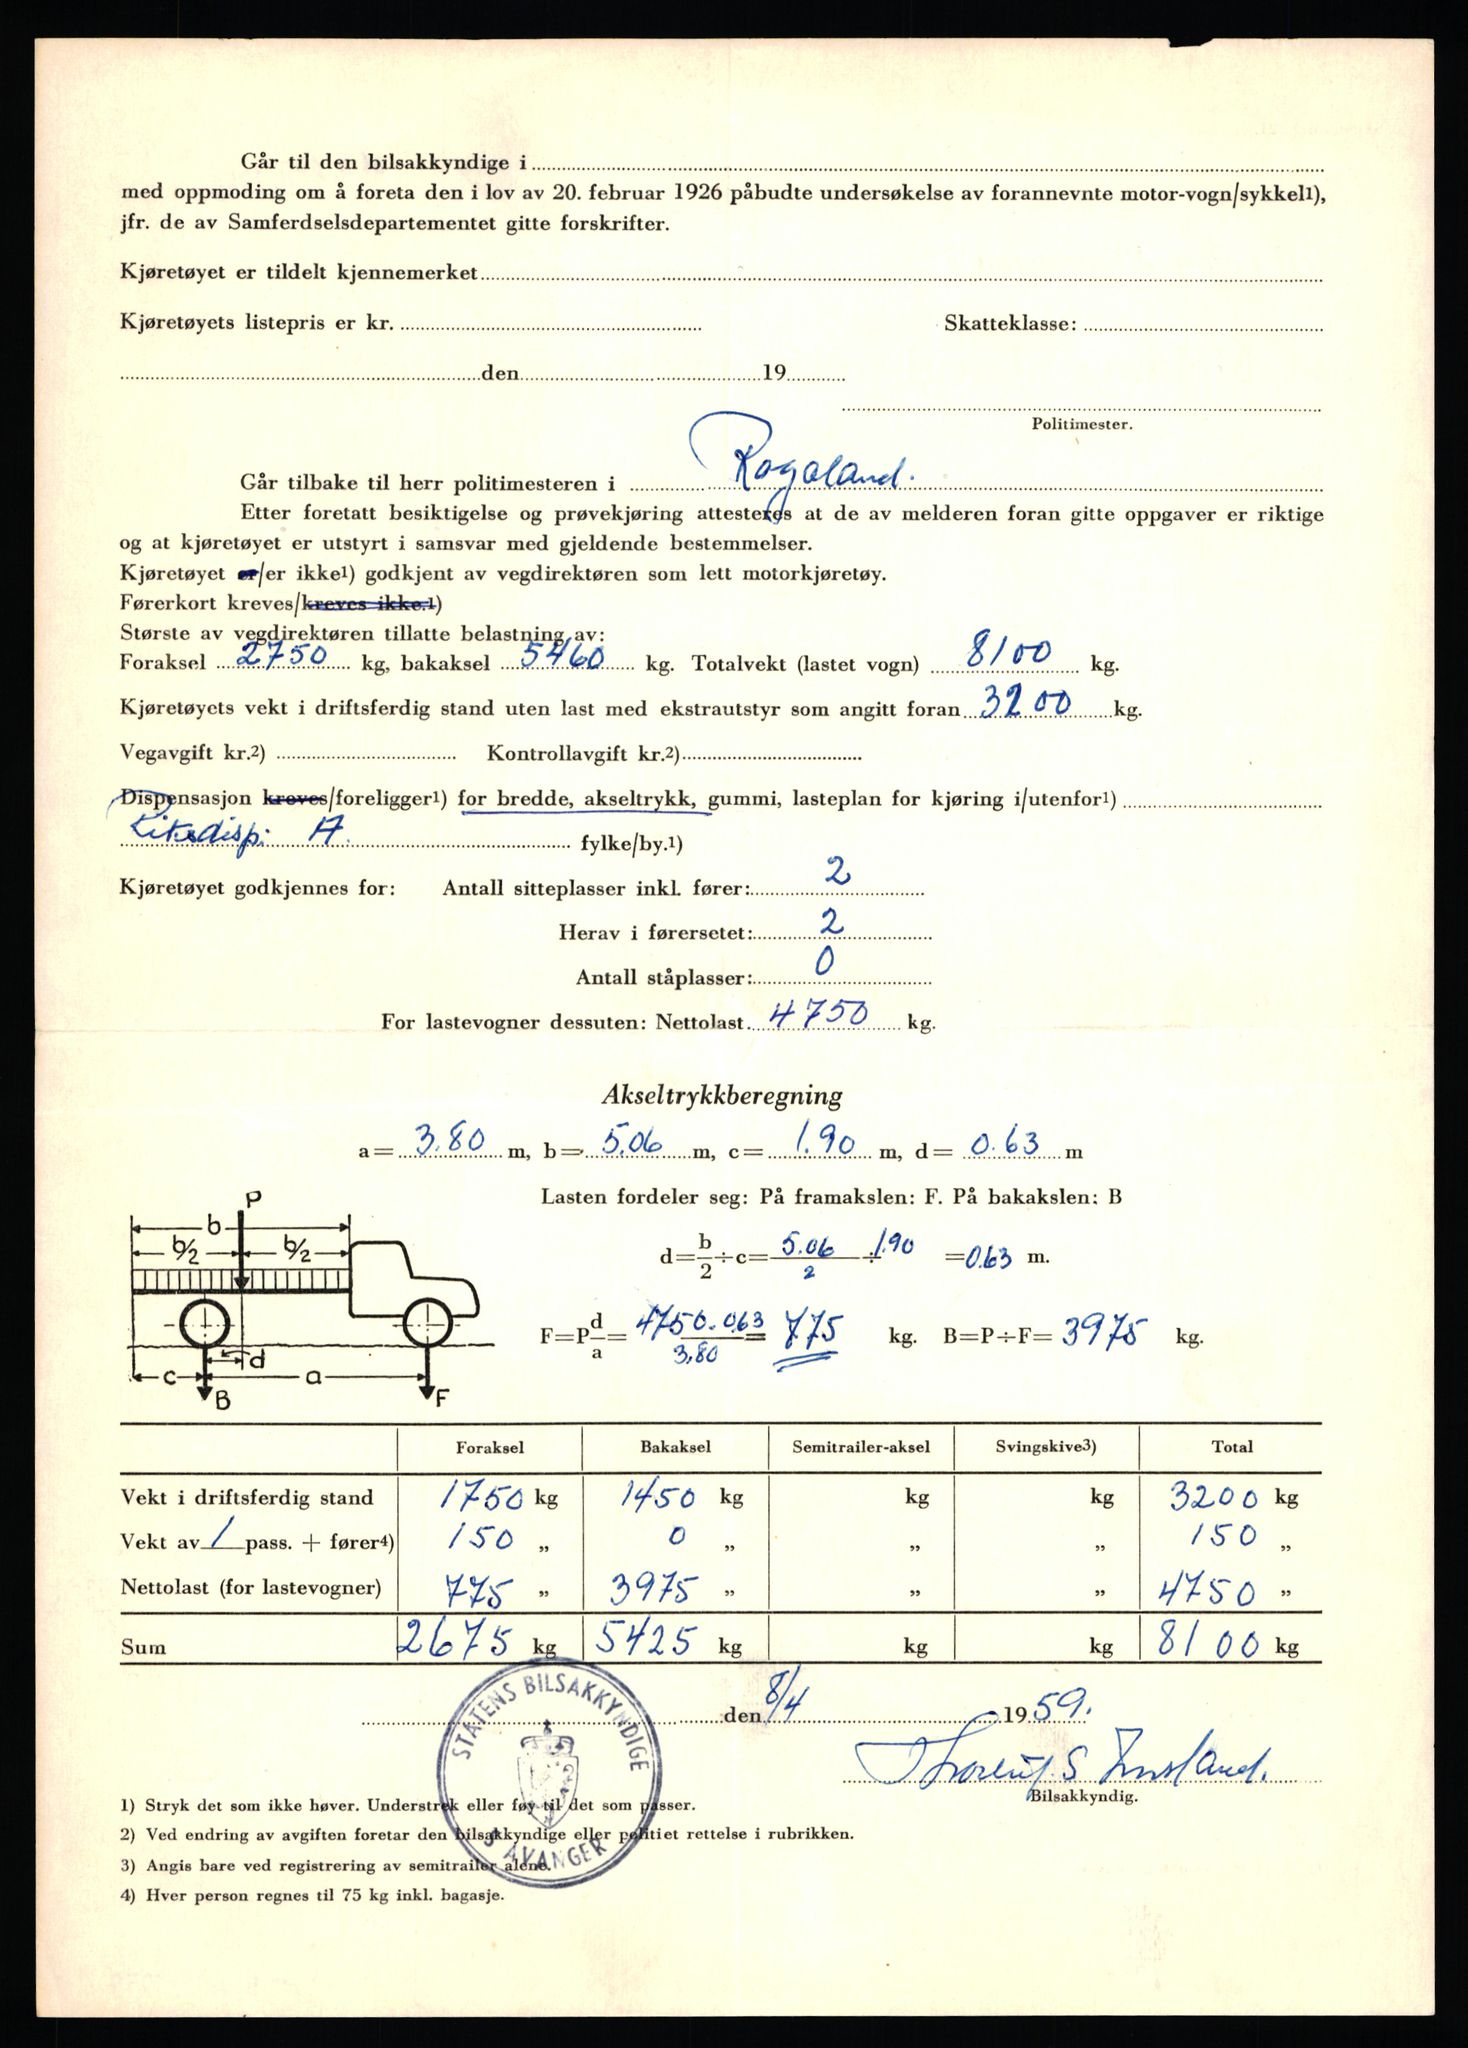 Går til den bilsakkyndige i
med oppmoding om å foreta den i lov av 20. februar 1926 påbudte undersøkelse av forannevnte motor-vogn/sykkel1),
jfr. de av Samferdselsdepartementet gitte forskrifter.
Kjøretøyet er tildelt kjennemerket
Kjøretøyets listepris er kr. Skatteklasse:
den 19
Politimester.
Går tilbake til herr politimesteren i Rogaland.
Etter foretatt besiktigelse og prøvekjøring attesteres at de av melderen foran gitte oppgaver er riktige
og at kjøretøyet er utstyrt i samsvar med gjeldende bestemmelser.
Kjøretøyet er/er ikke1) godkjent av vegdirektøren som lett motorkjøretøy.
Førerkort kreves/kreves ikke.1)
Største av vegdirektøren tillatte belastning av:
Foraksel 2750 kg, bakaksel 5460 kg. Totalvekt (lastet vogn) 8100 kg.
Kjøretøyets vekt i driftsferdig stand uten last med ekstrautstyr som angitt foran 3200 kg.
Vegavgift kr.2) Kontrollavgift kr.2)
Dispensasjon kreves/foreligger1) for bredde, akseltrykk, gummi, lasteplan for kjøring i/utenfor1)
A. fylke/by.1)
Kjøretøyet godkjennes for: Antall sitteplasser inkl. fører: 2
Herav i førersetet: 2
Antall ståplasser: 0
For lastevogner dessuten: Nettolast 4750 kg.
Akseltrykkberegning
a= 3.80 m, b= 5.06 m, c= 1.90 m, d= 0.63 m
Lasten fordeler seg: På framakslen: F. På bakakslen: B
d=b/2÷c= 5.06/2 ÷ 1.90 =0.63 m.
F=P d/a= 4750. 0.63/3.80 = 775 kg. B=P÷F= 3975 kg.
P
b
b/2 b/2
d
c a
B F
Foraksel Bakaksel Semitrailer-aksel Svingskive3) Total
Vekt i driftsferdig stand 1750 kg 1450 kg kg kg 3200 kg
Vekt av 1 pass. + fører4) 150 „ 0 „ „ „ 150 „
Nettolast (for lastevogner) 775 „ 3975 „ „ „ 4750 „
Sum 2675 kg 5425 kg kg kg 8100 kg
den 8/4 1959.
Bilsakkyndig.
STATENS BILSAKKYNDIGE
STAVANGER
1) Stryk det som ikke høver. Understrek eller føy til det som passer.
2) Ved endring av avgiften foretar den bilsakkyndige eller politiet rettelse i rubrikken.
3) Angis bare ved registrering av semitrailer alene.
4) Hver person regnes til 75 kg inkl. bagasje.